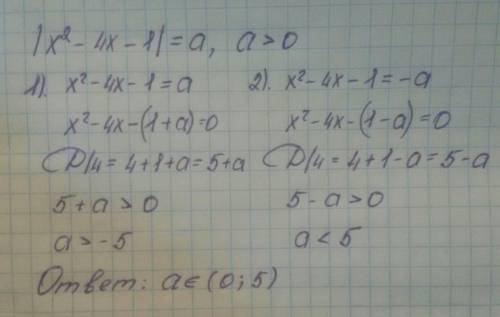 |x² - 4x - 1| = a, a > 0
1). x² - 4x - 1 = a 2). x² - 4x - 1 = -a
x² - 4x - (1+a) = 0 x² - 4x - (1-a) = 0
D/4 = 4+1+a = 5+a D/4 = 4+1-a = 5-a
5+a > 0 5-a > 0
a > -5 a < 5
Ответ: a ∈ (0; 5)